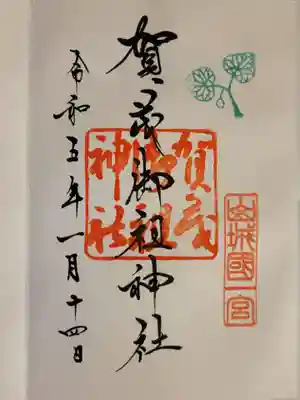 山城國一宮
賀茂御祖神社
賀茂御祖神社
令和五年一月十四日